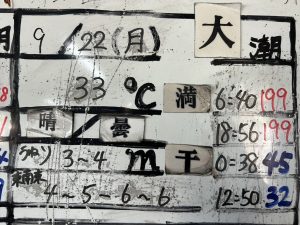 9/22(月) 大潮
33℃ 満 6:40 199
晴/曇 18:56 199
3~4m 干 0:38 45
4~5~6~6 12:50 32